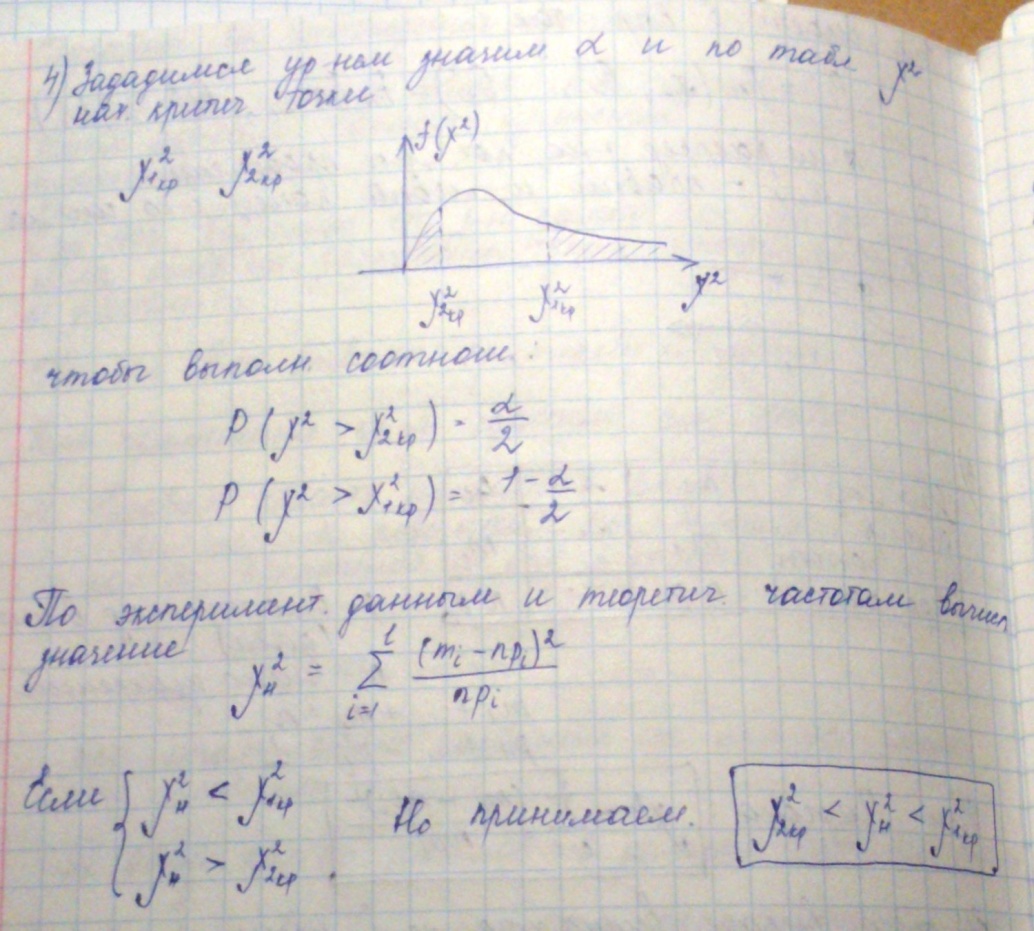 4) Зададимся ур-нем значим. α и по табл χ²
нах. критич. точки
χ²₁кр χ²₂кр
f(χ²)
χ²₂кр χ²₁кр χ²
чтобы выполн. соотнош.:
P (χ² > χ²₂кр) = α/2
P (χ² > χ²₁кр) = 1 - α/2
По эксперимент. данным и теоретич. частотам вычисл.
значение
χ²н = Σ i=1 l (mi - npi)² / npi
Если { χ²н < χ²₁кр
χ²н > χ²₂кр .
H₀ принимаем.
χ²₂кр < χ²н < χ²₁кр